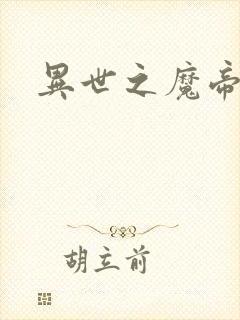 異世之魔帝
胡立前